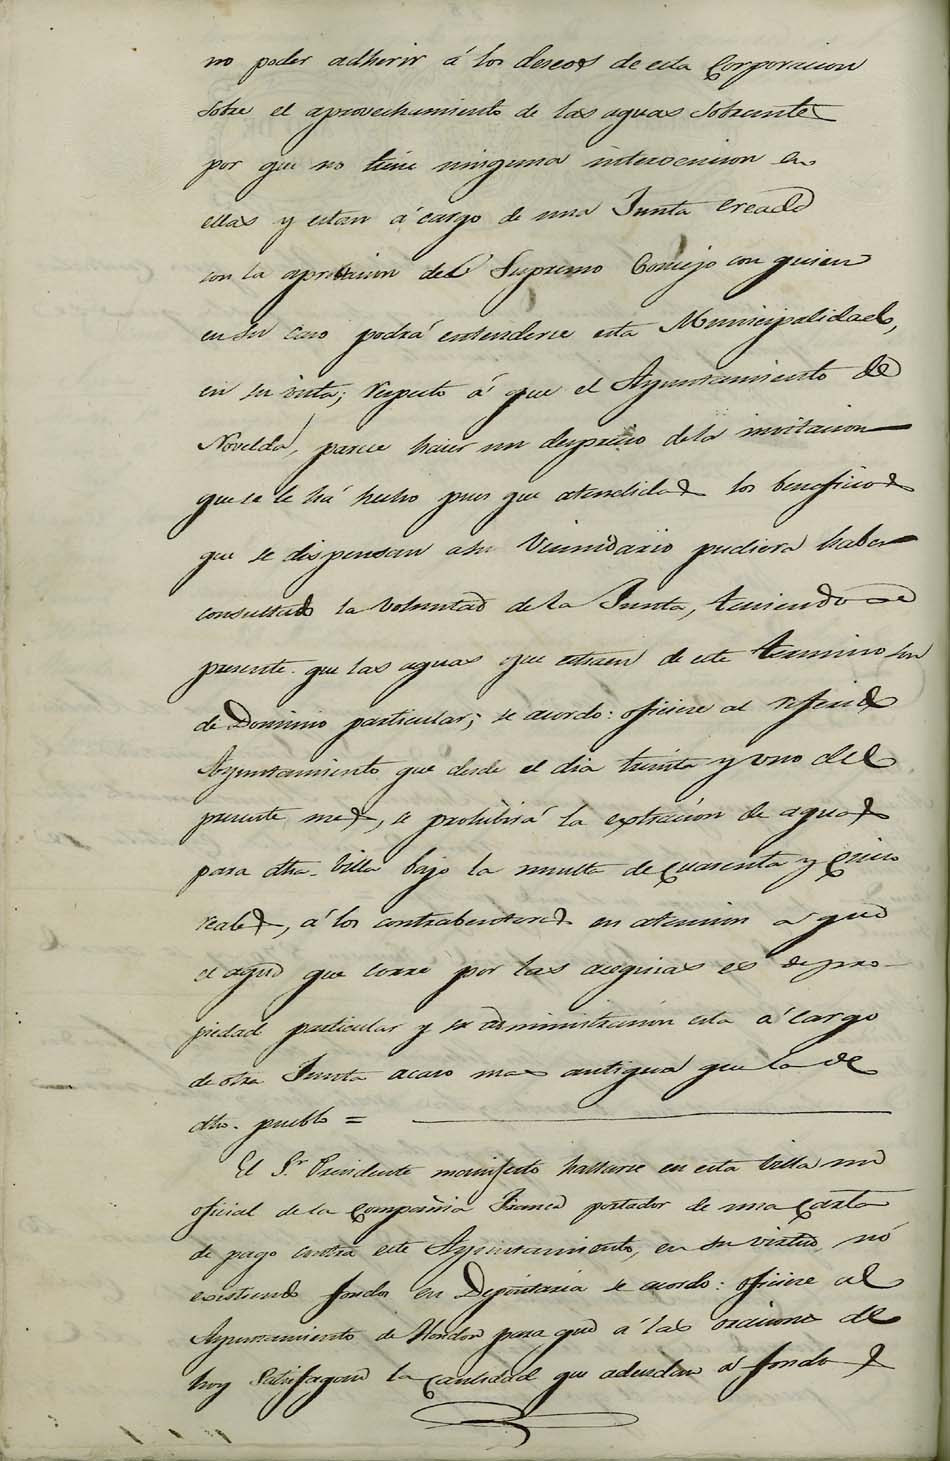 no poder adherir á los deseos de esta Corporacion
sobre el aprovechamiento de las aguas sobrantes
por que no tiene ninguna intervencion en
ellas y estan á cargo de una Junta creada
con la aprovacion del Supremo Consejo con quien
en su caso podrá entenderse esta Municipalidad,
en su vista; respecto á que el Ayuntamiento de
Novelda, parece hacer un desprecio de la invitacion
que se le há hecho pues que atendidos los beneficios
que se dispensan a su Vecindario pudiera haber
consultado la voluntad de la Junta, teniendose
presente que las aguas que estraen de este termino son
de Dominio particular; se acordo: oficiese al referido
Ayuntamiento que desde el dia treinta y uno del
presente mes, se prohibirá la extracion de aguas
para dha. Villa bajo la multa de cuarenta y cinco
reales, á los contraventores en atencion a que
el agua que corre por las acequias es de pro-
piedad particular y su administracion esta á cargo
de otra Junta acaso mas antigua que la de
dho. pueblo =
El Sr. Presidente manifesto hallarse en esta Villa un
oficial de la Compañia Franca portador de una carta
de pago contra este Ayuntamiento, en su virtud, nó
existiendo fondos en Depositaria se acordo: oficiese al
Ayuntamiento de Hondon para que á las oraciones de
hoy satisfagan la cantidad que adeudan á fondos